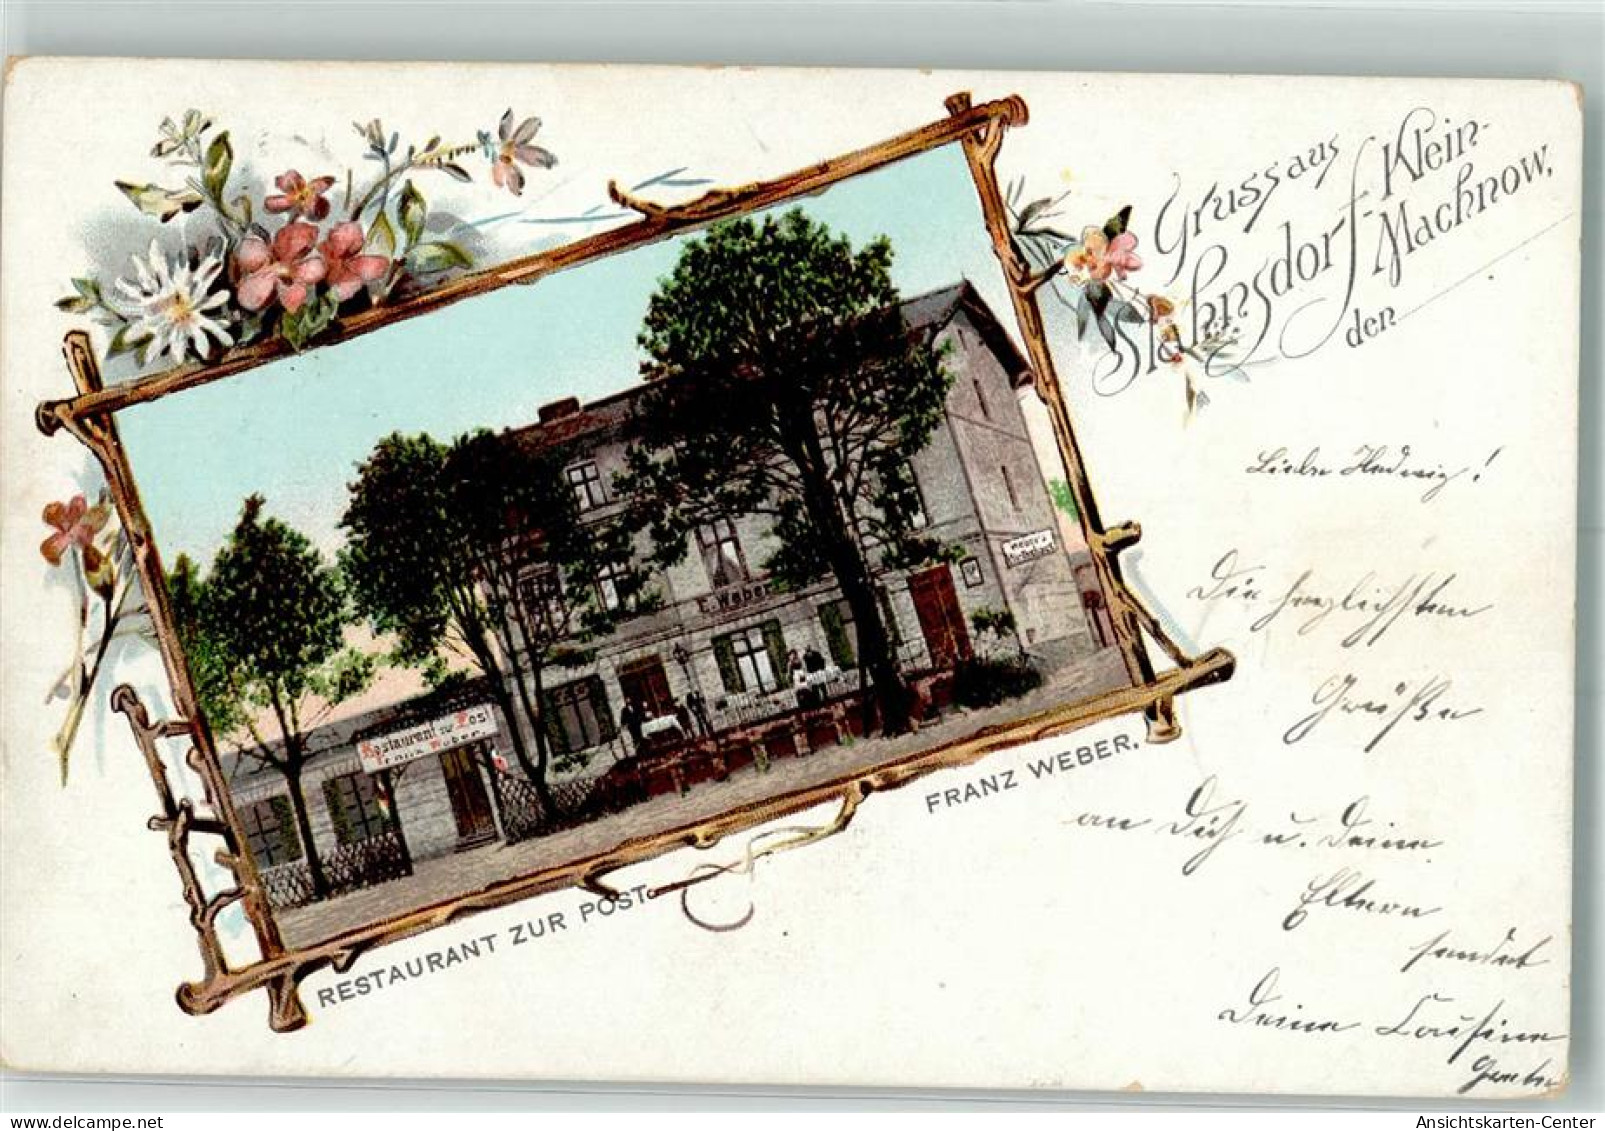 Gruss aus
Stahnsdorf-Klein-
Machnow,
den
Liebe Hedwig!
Die herzlichsten
Grüße
an Dich u. Deine
Eltern
sendet
Deine Cousine
F. Weber
Restaurant zur Post
Franz Weber.
RESTAURANT ZUR POST
FRANZ WEBER.
Ansichtskarten-Center